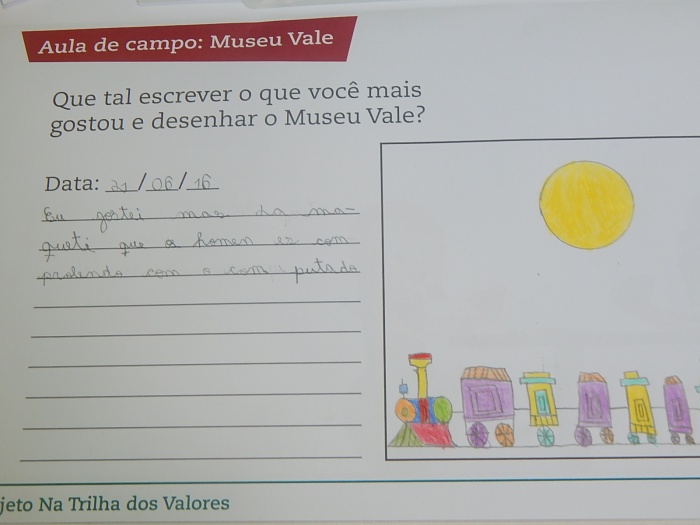 Aula de campo: Museu Vale
Que tal escrever o que você mais
gostou e desenhar o Museu Vale?
Data: 21/06/16
Eu gostei mas da ma-
queti que o homen com
com o com putado
jeto Na Trilha dos Valores